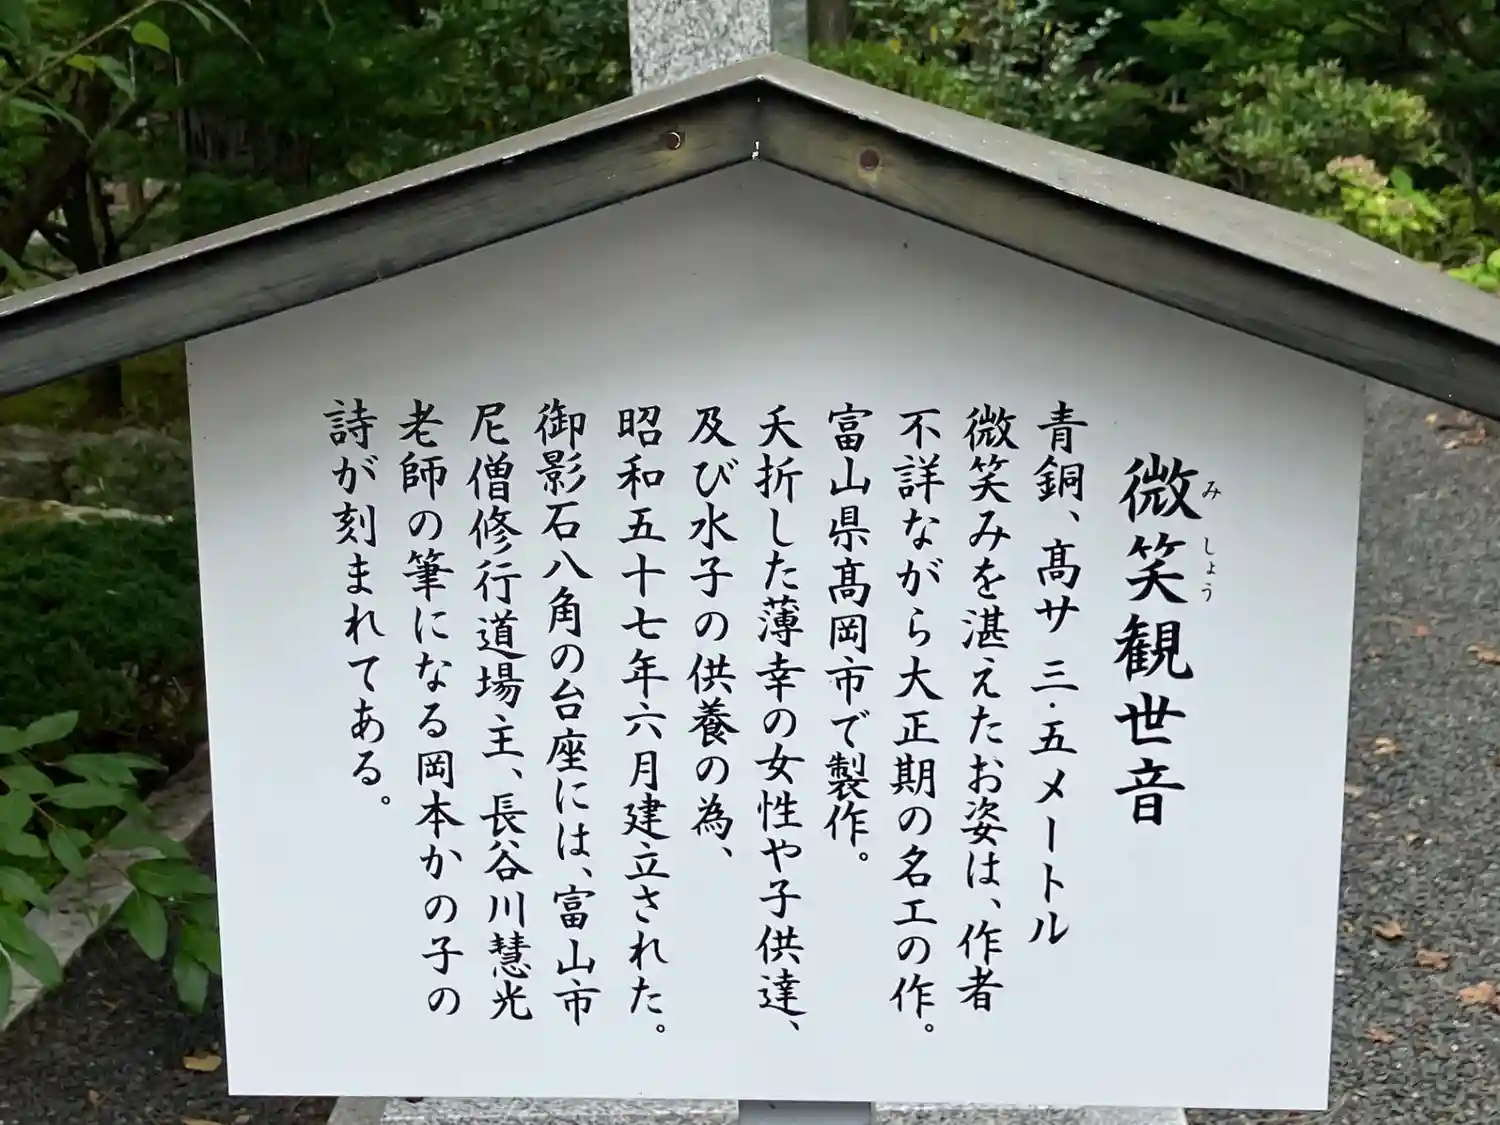 微笑観世音
みしょう
青銅、髙サ 三・五メートル
微笑みを湛えたお姿は、作者
不詳ながら大正期の名工の作。
富山県髙岡市で製作。
夭折した薄幸の女性や子供達、
及び水子の供養の為、
昭和五十七年六月建立された。
御影石八角の台座には、富山市
尼僧修行道場主、長谷川慧光
老師の筆になる岡本かの子の
詩が刻まれてある。